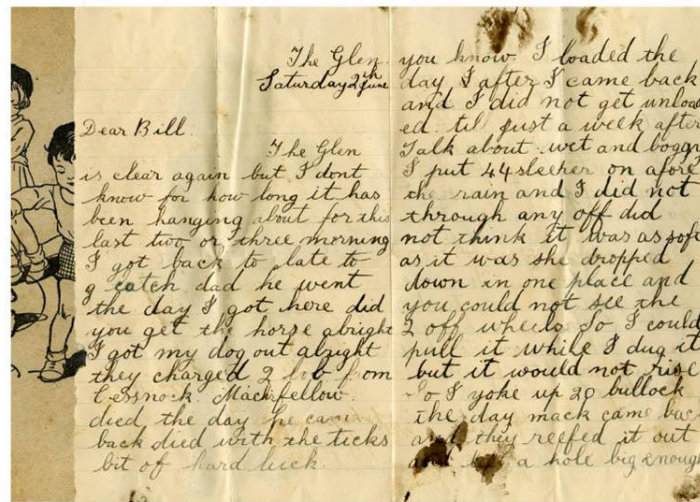 The Glen
Saturday 2th June
Dear Bill.
The Glen
is clear again but I dont
know for how long it has
been hanging about for this
last two or three morning
I got back to late to
g catch dad he went
the day I got here did
you get the horse alright
I got my dog out alright
they charged 2 bob from
Cessnock. Mack fellow
died the day he came
back died with the ticks
bit of hard luck.
you know. I loaded the
day I after I came back
and I did not get unload
ed. til just a week after
Talk about wet and boggy
I put 44 sleeper on afore
the rain and I did not
through any off did
not think it was as soft
as it was she dropped
down in one place and
you could not see the
2 off wheels So I could
pull it while I dug it
but it would not rise
So I yoke up 20 bullock
the day mack came bac
and they reefed it out
and a hole big enough